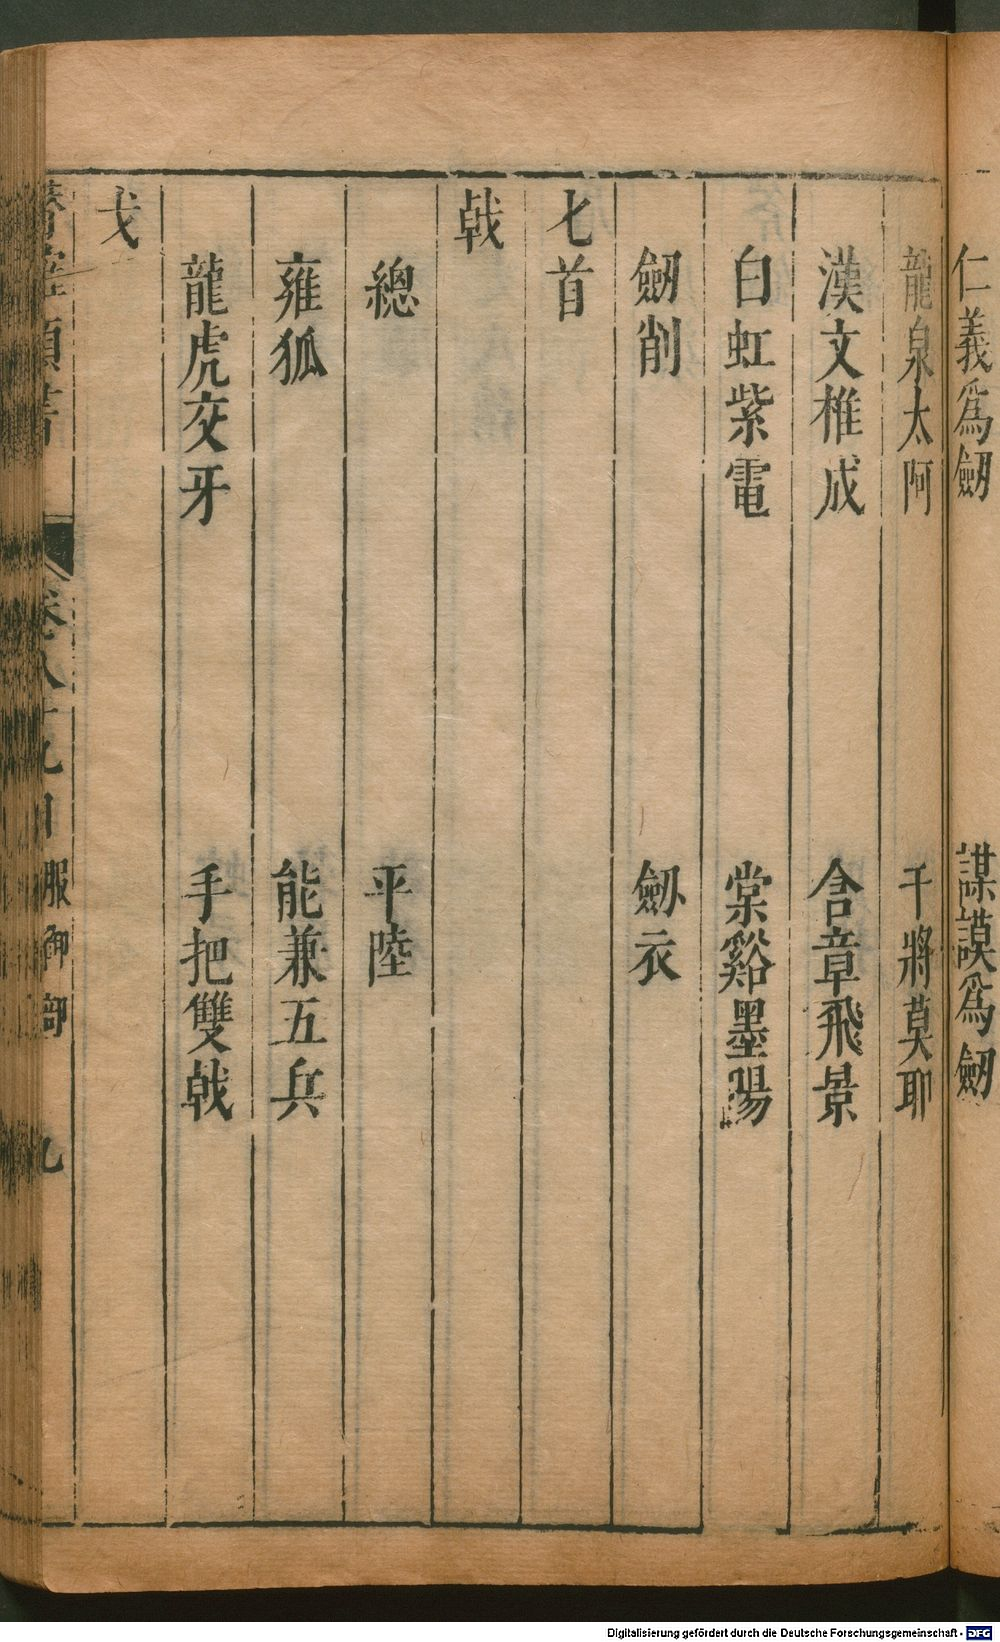 仁義爲劒　謀謨爲劒
龍泉太阿　干將莫耶
漢文椎成　含章飛景
白虹紫電　棠谿墨陽
劒削　劒衣
匕首
戟
總　平陸
雍狐　能兼五兵
龍虎交牙　手把雙戟
戈
卷八十九目　服御部　九
Digitalisierung gefördert durch die Deutsche Forschungsgemeinschaft - DFG